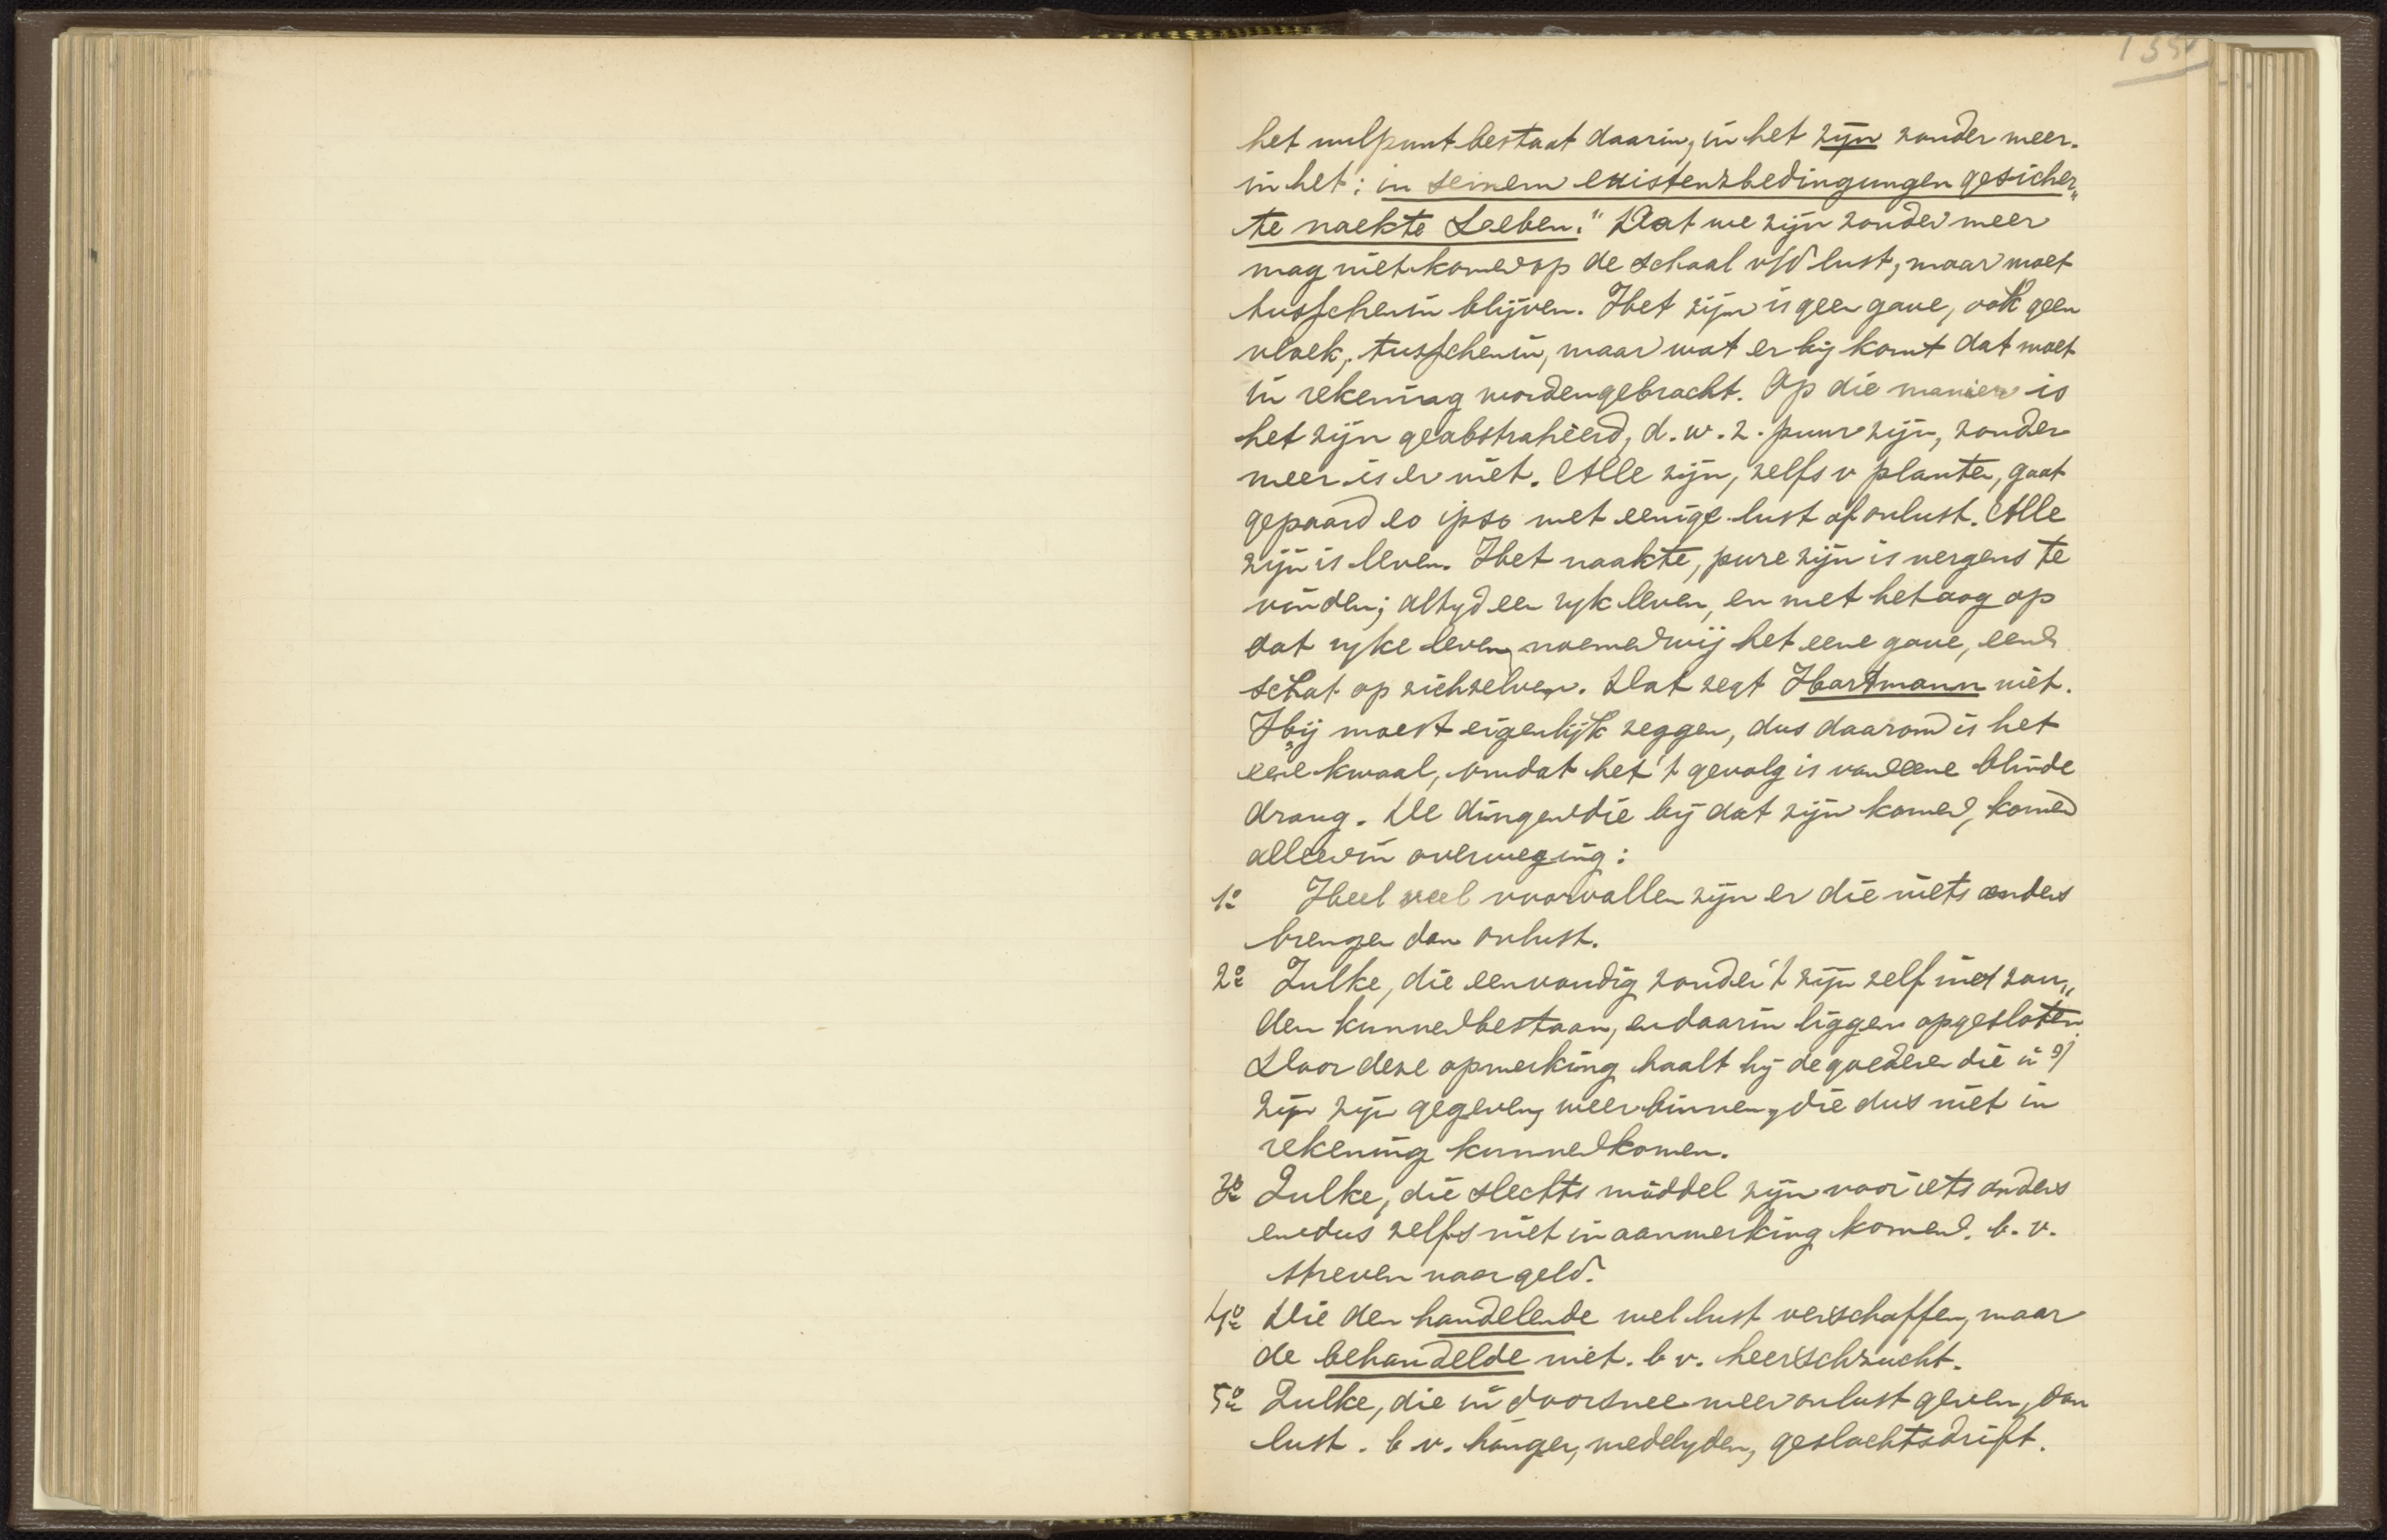 het nulpunt bestaat daarin, in het zijn zonder meer.
in het: in seinem existenzbedingungen gesicher„
te nackte Leeben." Dat we zijn zonder meer
mag niet komen op de schaal v/d lust, maar moet
tusschenin blijven. Het zijn is geen gave, ook geen
vloek, tusschenin, maar wat er bij komt dat moet
in rekening worden gebracht. Op die manier is
het zijn geabstraheerd, d.w.z. puur zijn, zonder
meer is er niet. Alle zijn, zelfs v planten, gaat
gepaard eo ipso met eenige lust of onlust. Alle
zijn is leven. Het naakte, pure zijn is nergens te
vinden; altyd een ryk leven, en met het oog op
dat ryke leven, noemen wij het eene gave, een
schat op zichzelven. Dat zegt Hartmann niet.
Hij moest eigenlijk zeggen, dus daarom is het
eene kwaal, omdat het 't gevolg is van eene blinde
drang. De dingen die bij dat zijn komen, komen
alleen in overweging:
1o Heel veel voorvallen zijn er die niets anders
brengen dan onlust.
2o Zulke, die eenvoudig zonder 't zijn zelf niet zou„
den kunnen bestaan, en daarin liggen opgesloten.
Door deze opmerking haalt hij de goederen die in 't
zijn zijn gegeven, weer binnen, die dus niet in
rekening kunnen komen.
3o Zulke, die slechts middel zijn voor iets anders
en dus zelfs niet in aanmerking komen. b.v.
streven naar geld.
4o Die den handelende wel lust verschaffen, maar
de behandelde niet. b v. heerschzucht.
5o Zulke, die in doorsnee meer onlust geven, dan
lust. b v. honger, medelyden, geslachtsdrift.